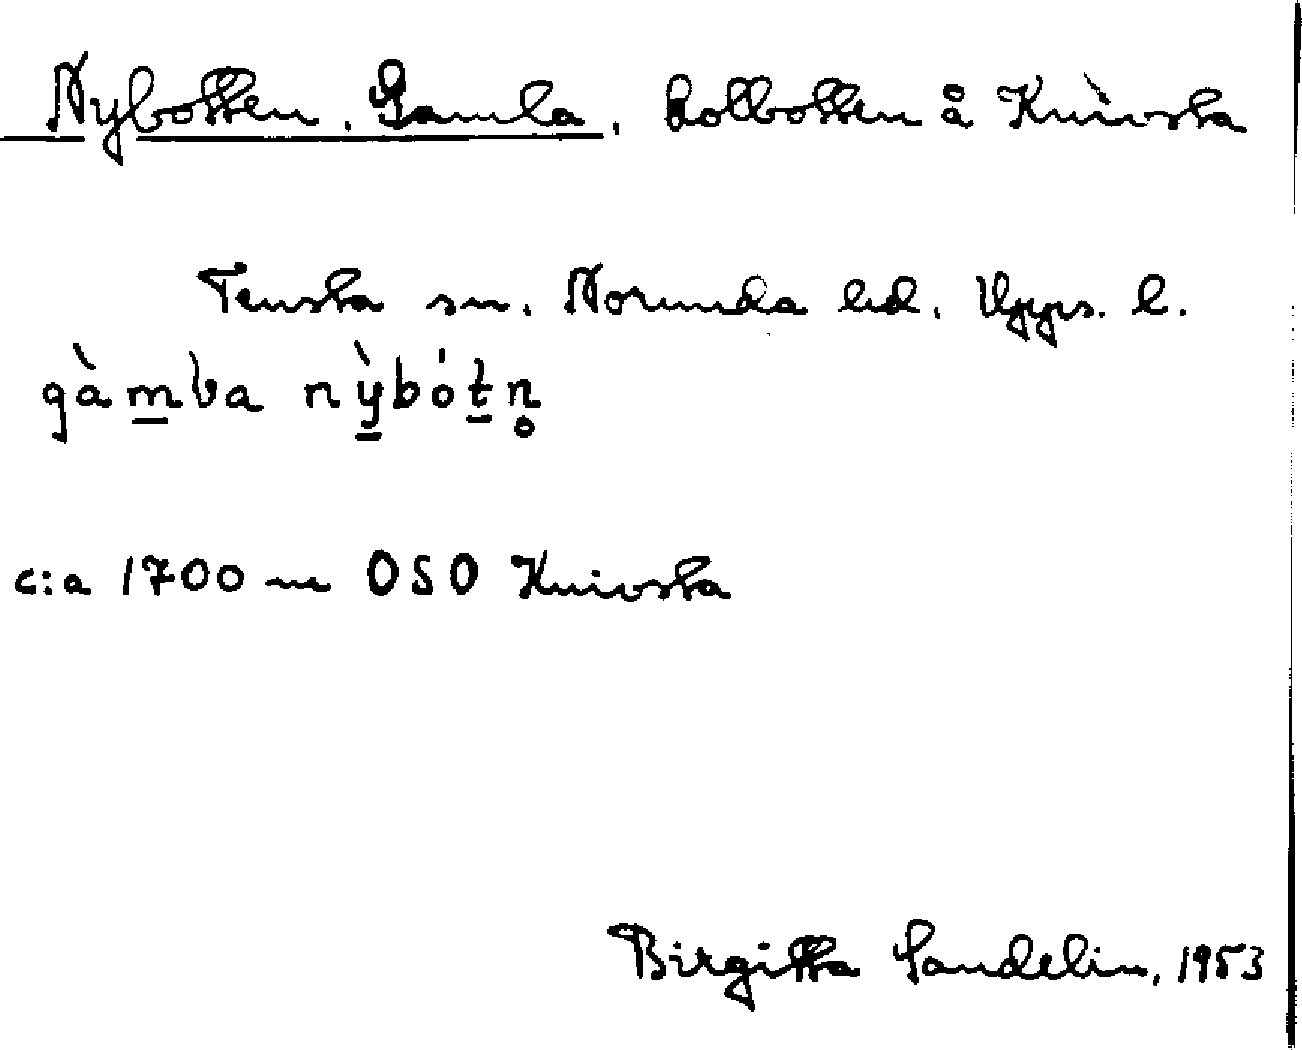 Nybotten, Gamla, kolbotten å Knivsta
Tensta sn. Norunda hd. Upps. l.
gàm̲ba nỳ̲bót̲n̥
c:a 1700 m OSO Knivsta
Birgitta Sandelin, 1953